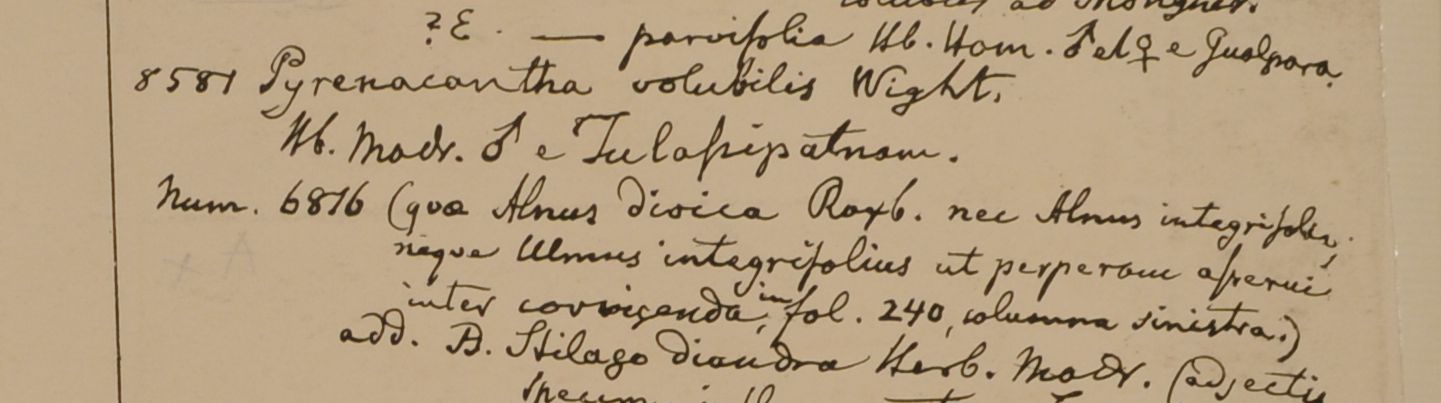 ?E. — parvifolia Hb. Ham. ♂ et ♀ e Gualpara.
8581 Pyrenacantha volubilis Wight.
Hb. Madr. ♂ e Tulassipatnam.
Num. 6816 (quæ Alnus dioica Roxb. nec Alnus integrifolia,
neque Ulmus integrifolius ut perperam asserui
inter corrigenda, in fol. 240, columna sinistra.)
add. B. Stilago diandra Herb. Madr. (adjectis
specim.